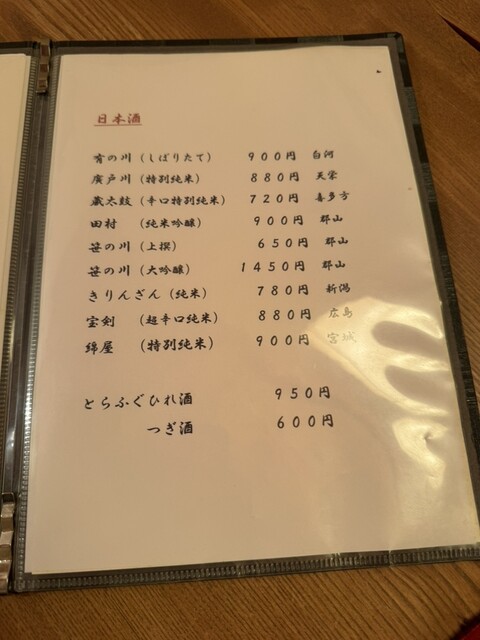 日本酒
有の川（しぼりたて） 900円 白河
廣戸川（特別純米） 880円 天栄
蔵太鼓（辛口特別純米） 720円 喜多方
田村 （純米吟醸） 900円 郡山
笹の川（上撰） 650円 郡山
笹の川（大吟醸） 1450円 郡山
きりんざん（純米） 780円 新潟
宝剣 （超辛口純米） 880円 広島
綿屋 （特別純米） 900円 宮城
とらふぐひれ酒 950円
つぎ酒 600円